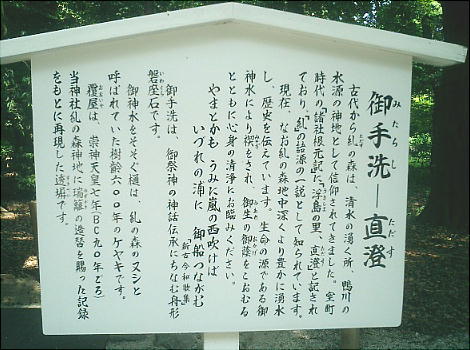 御手洗―直澄
みたらし
ただす
古代から糺の森は、清水の湧く所、鴨川の
水源の神地として信仰されてきました。室町
時代の『諸社根元記』に、浮島の里、直澄と記され
ており、「糺」の語源の一説として知られています。
現在、なお糺の森地中深くより豊かに湧水
し、歴史を伝えています。生命の源である御
神水により禊をされ、御生の御蔭をこおむる
とともに心身の清浄にお臨みください。
やまとかも うみに嵐の西吹けば
いづれの浦に 御船つながむ
「新古今和歌集」
御手洗は、御祭神の神話伝承にちなむ舟形
磐座石です。
いわくら
御神水をそそぐ樋は 糺の森のヌシと
呼ばれていた樹齢六〇〇年のケヤキです。
覆屋は、崇神天皇七年(BC九〇年ごろ)
当神社糺の森神地に瑞籬の造替を賜った記録
をもとに再現した遺構です。